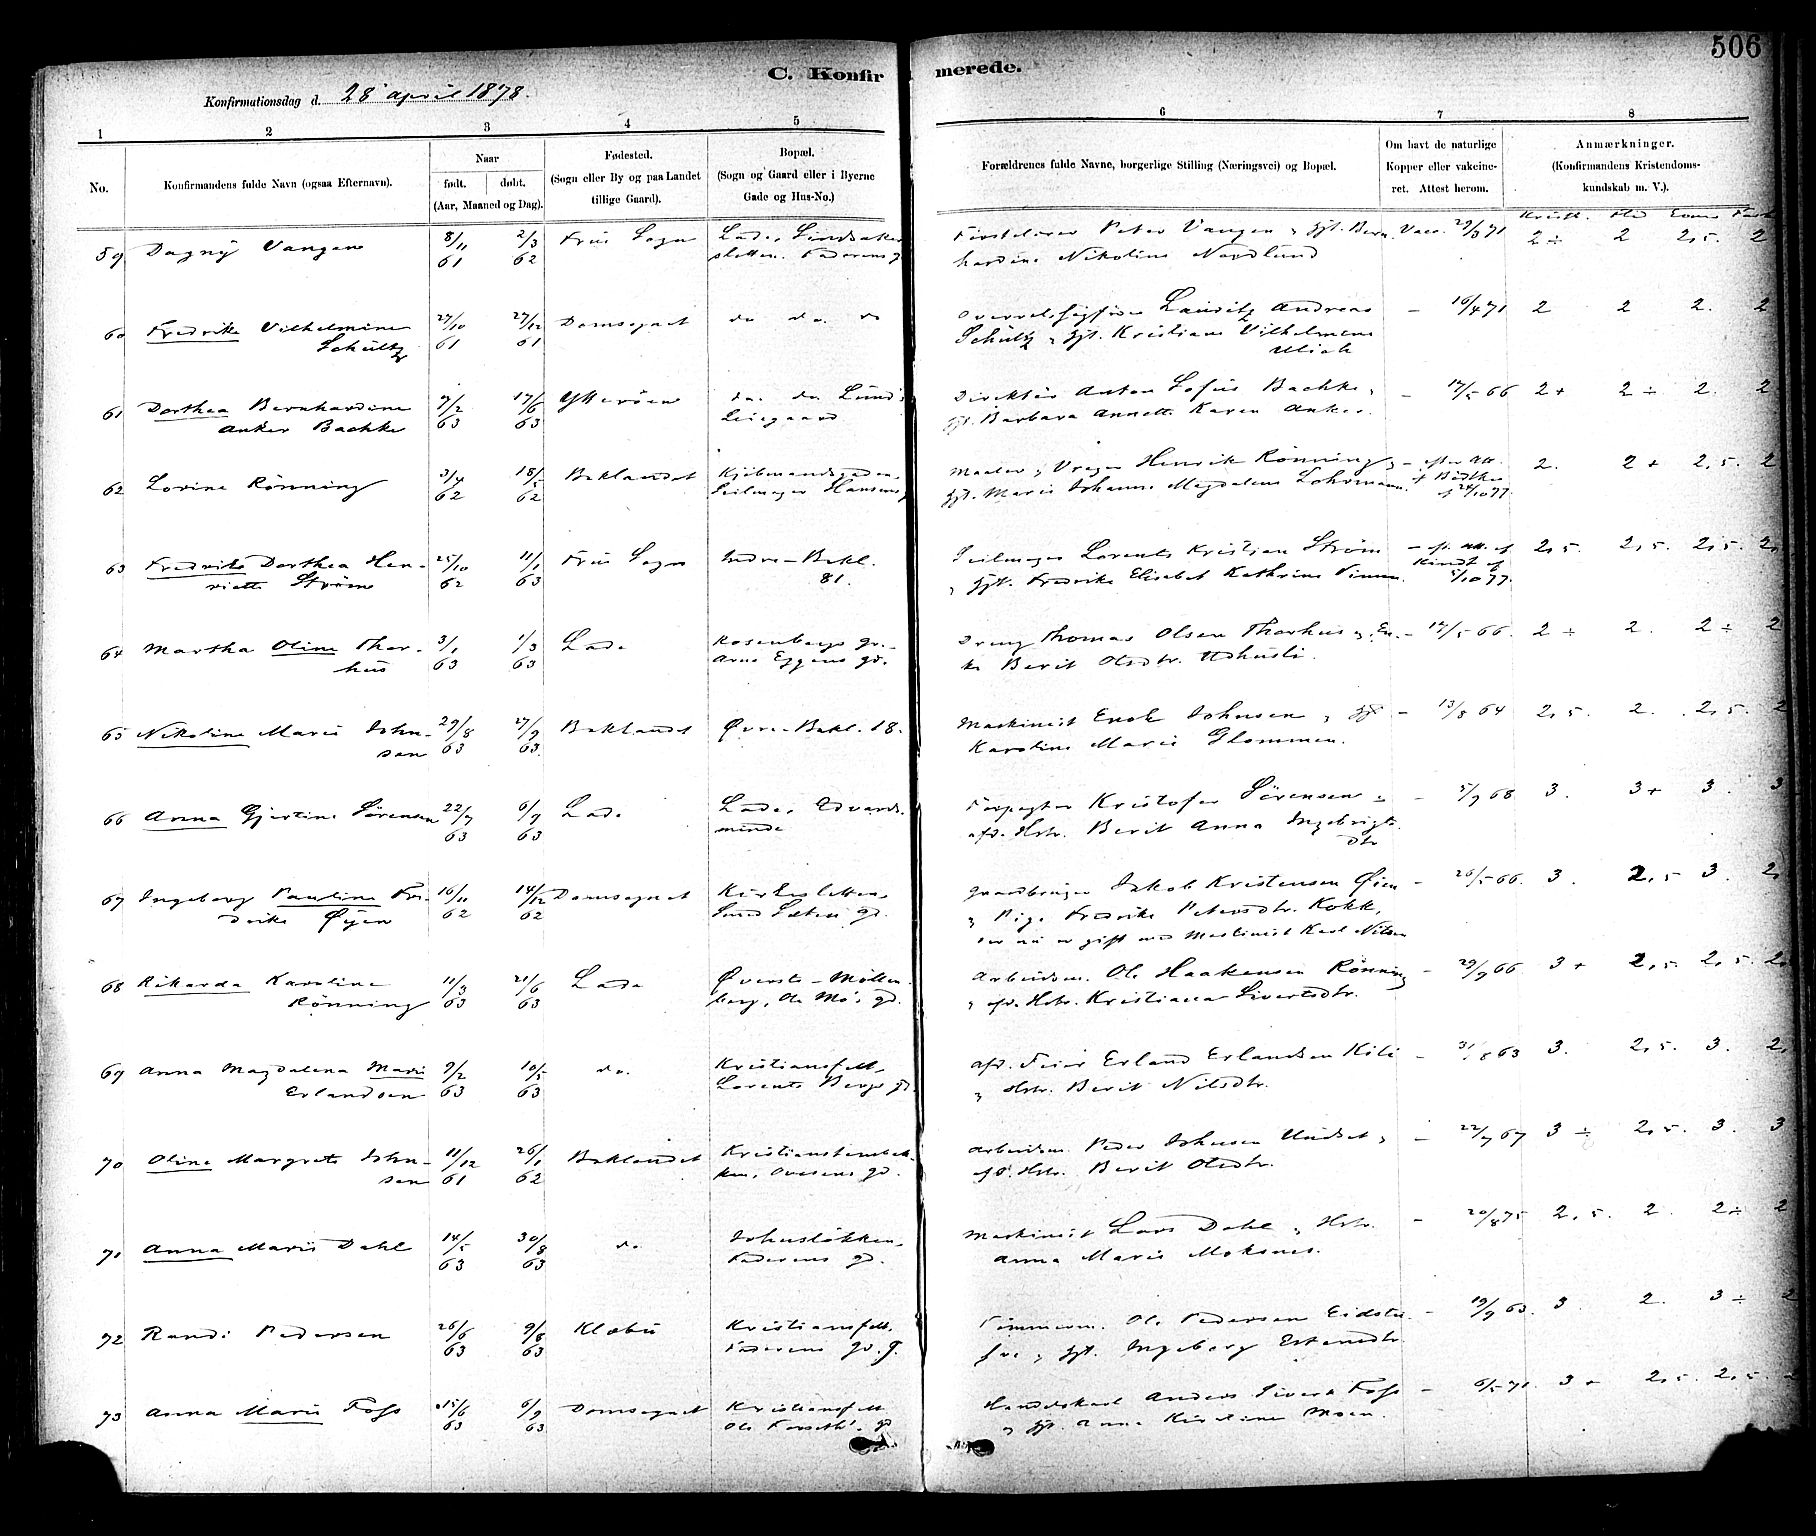 506
C. Konfirmerede.
Konfirmationsdag d. 28 april 1878.
1 2 3 4 5 6 7 8
No.
Konfirmandens fulde Navn (ogsaa Efternavn).
Naar
født. døbt.
(Aar, Maaned og Dag).
Fødested.
(Sogn eller By og paa Landet
tillige Gaard).
Bopæl.
(Sogn og Gaard eller i Byerne
Gade og Hus-No.)
Forældrenes fulde Navne, borgerlige Stilling (Næringsvei) og Bopæl.
Om havt de naturlige
Kopper eller vakcine-
ret. Attest herom.
Anmærkninger.
(Konfirmandens Kristendoms-
kundskab m. V.).
59 Dagny Vangen 8/11 2/3 Frue Sogn Lade,
61 62
Peter Vangen Vacc. 29/3 71 2 ÷ 2 2,5. 2
Nikoline Nordlund
60 Fredrike Vilhelmine 27/10 27/12 Domsognet do do. do
Schültz 61 61
Lauritz Andreas — 16/4 71 2 2 2. 2
Schültz gft. Kristiane Vilhelmine
Ulich
61 Dorthea Bernhardine 7/2 17/6 Ytterøen do. do
Anker Bachke 63 63
Direktør Anton Sofus Bachke — 17/5 66 2 + 2 ÷ 2. 2
gft. Barbara Annette Karen Anker.
62 Lovine Rønning 3/4 18/5 Baklandet Kjøbmandsgaden
62 62 Seilmager Hansens
Maaler Henrik Rønning — efter Att. 2. 2 + 2,5. 2
gft. Marie Johanne Magdalene
24/10 77.
63 Fredrike Dorthea Hen- 25/10 11/1 Frue Sogn Indre-Bakl.
riette Strøm 62 63 81.
Seilmager Lorents Kristian Strøm 2,5. 2,5. 2,5. 2,
gft. Fredrike Elisabet Kathrine 5/10 77.
64 Martha Oline Thor- 3/1 1/3 Lade Rosenborgs
hus 63 63 Arne Eggens gd.
Dreng Thomas Olsen Thorhus En- — 17/5 66. 2 ÷ 2. 2 ÷ 2
ke Berit Olsdtr.
65 Nikoline Marie John- 29/8 27/9 Baklandet Øvre-Bakl. 18.
sen 63 63.
Maskinist Enok Johnsen gft — 13/8 64 2,5. 2. 2,5. 2
Karoline Marie Glommen.
66 Anna Gjertine Sørensen 22/7 6/9 Lade Lade, Edvards-
63 63 minde
Forpagter Kristofer Sørensen — 5/9 68 3. 3+ 3. 3
afd. Hstr. Berit Anna Ingebrigts
dtr
67 Ingeborg Pauline Fre- 16/11 14/12 Domsognet Kirkesletten
derike Øyen 62 62
Jakob Kristensen Øien — 26/5 66. 3. 2,5 3. 2,
Pige Fredrike Petersdtr. Kokk,
som nu er gift med Maskinist Karl Nilsen
68 Rikarda Karoline 11/3 21/6 Lade Øverste-Møllen-
Rønning 63 63 berg, Ole Mo's gd.
Arbeidsm. Ole Haakensen Rønning — 29/9 66 3 + 2,5. 2,5. 2,
afd. Hstr. Kristianna Sivertsdtr.
69 Anna Magdalena Marie 9/2 10/5 do. Kristiansfeldt
Erlandsen 63 63 Lorents Bergs gd.
afd. Feier Erland Erlandsen — 31/8 63 3. 2,5. 3. 2,
Hstr. Berit Nilsdtr.
70 Oline Margrete John- 11/12 26/1 Baklandet Kristianstensbak-
sen 61 62 ken, Ovesens gd.
Arbeidsm. Peder Johnsen — 22/7 67 3 ÷ 2,5. 3. 3
afd. Hstr. Berit Olsdtr.
71 Anna Marie Dahl 14/5 30/8 do. Johnsløkken
63 63 Faderens gd.
Maskinist Lars Dahl Hstr. — 20/8 75 2,5. 2. 2÷ 2
Anna Marie Moksnes.
72 Randi Pedersen 26/6 9/8 Klæbu Kristiansfelt.
63 63 Faderens gd.
Tømmerm. Ole Pedersen — 19/9 63. 3. 2. 3 ÷ 2
gft. Ingeborg Estensdtr.
73 Anna Marie Foss 15/6 6/9 Domsognet Kristiansfelt
63 63 Ole Forseth's gd
Handelskarl Anders Sivers Foss — 6/5 71. 3 + 2,5. 2,5.
gft. Anna Kirstine Moen.